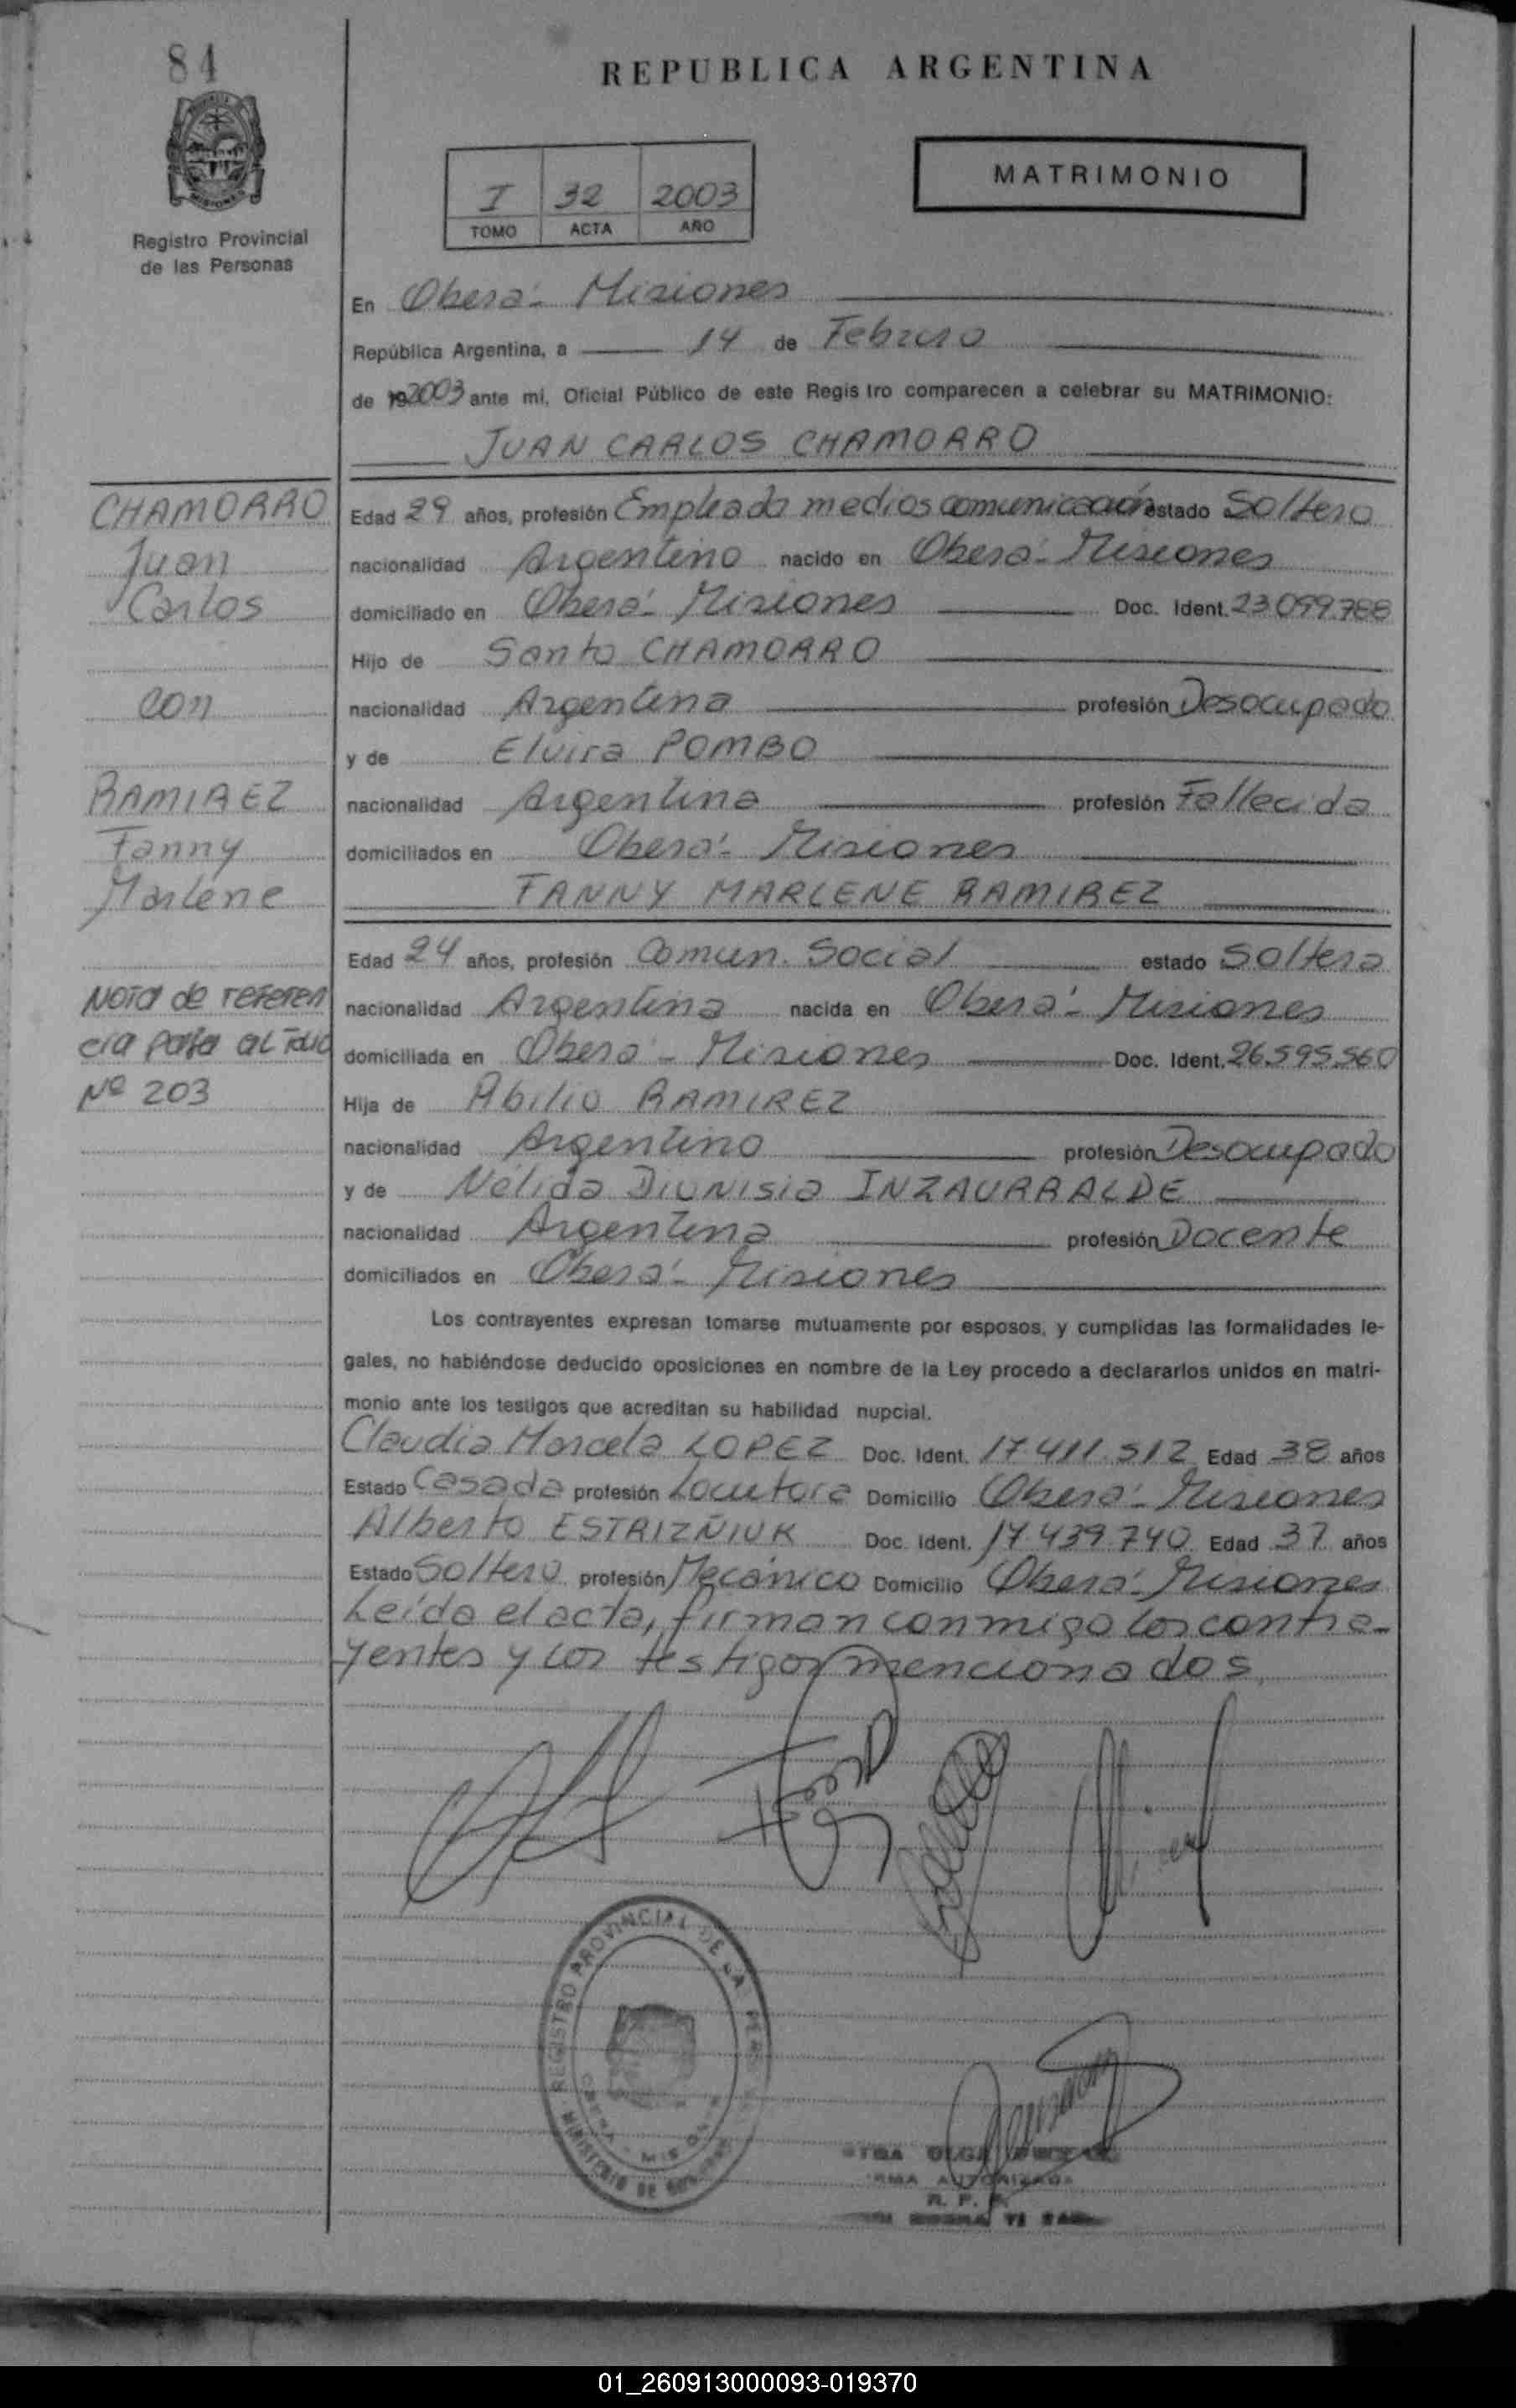 84
REPUBLICA ARGENTINA
I 32 2003
TOMO ACTA AÑO
MATRIMONIO
Registro Provincial
de las Personas
En Oberá - Misiones
República Argentina, a 14 de Febrero
de 192003 ante mi, Oficial Público de este Regis tro comparecen a celebrar su MATRIMONIO:
JUAN CARLOS CHAMORRO
CHAMORRO
Juan
Carlos
con
RAMIREZ
Fanny
Marlene
Nota de referen
cia pasa al folio
Nº 203
Edad 29 años, profesión Empleado medios comunicación estado Soltero
nacionalidad Argentino nacido en Oberá - Misiones
domiciliado en Oberá - Misiones Doc. Ident. 23.099.788
Hijo de Santo CHAMORRO
nacionalidad Argentina profesión Desocupado
y de Elvira POMBO
nacionalidad Argentina profesión Fallecida
domiciliados en Oberá - Misiones
FANNY MARLENE RAMIREZ
Edad 24 años, profesión Comun. Social estado Soltera
nacionalidad Argentina nacida en Oberá - Misiones
domiciliada en Oberá - Misiones Doc. Ident. 26.595.560
Hija de Abilio RAMIREZ
nacionalidad Argentino profesión Desocupado
y de Nélida Dionisia INZAURRALDE
nacionalidad Argentina profesión Docente
domiciliados en Oberá - Misiones
Los contrayentes expresan tomarse mutuamente por esposos, y cumplidas las formalidades le-
gales, no habiéndose deducido oposiciones en nombre de la Ley procedo a declararlos unidos en matri-
monio ante los testigos que acreditan su habilidad nupcial.
Claudia Marcela LOPEZ Doc. Ident. 17.411.512 Edad 38 años
Estado Casada profesión Locutora Domicilio Oberá - Misiones
Alberto ESTRIZÑIUK Doc. Ident. 17.439.740 Edad 37 años
Estado Soltero profesión Mecánico Domicilio Oberá - Misiones
Leída el acta, firman conmigo los contra-
yentes y los testigos mencionados
REGISTRO PROVINCIAL DE LAS
MINISTERIO DE
OLGA
AUTORIZADA
R. P.
01_260913000093-019370